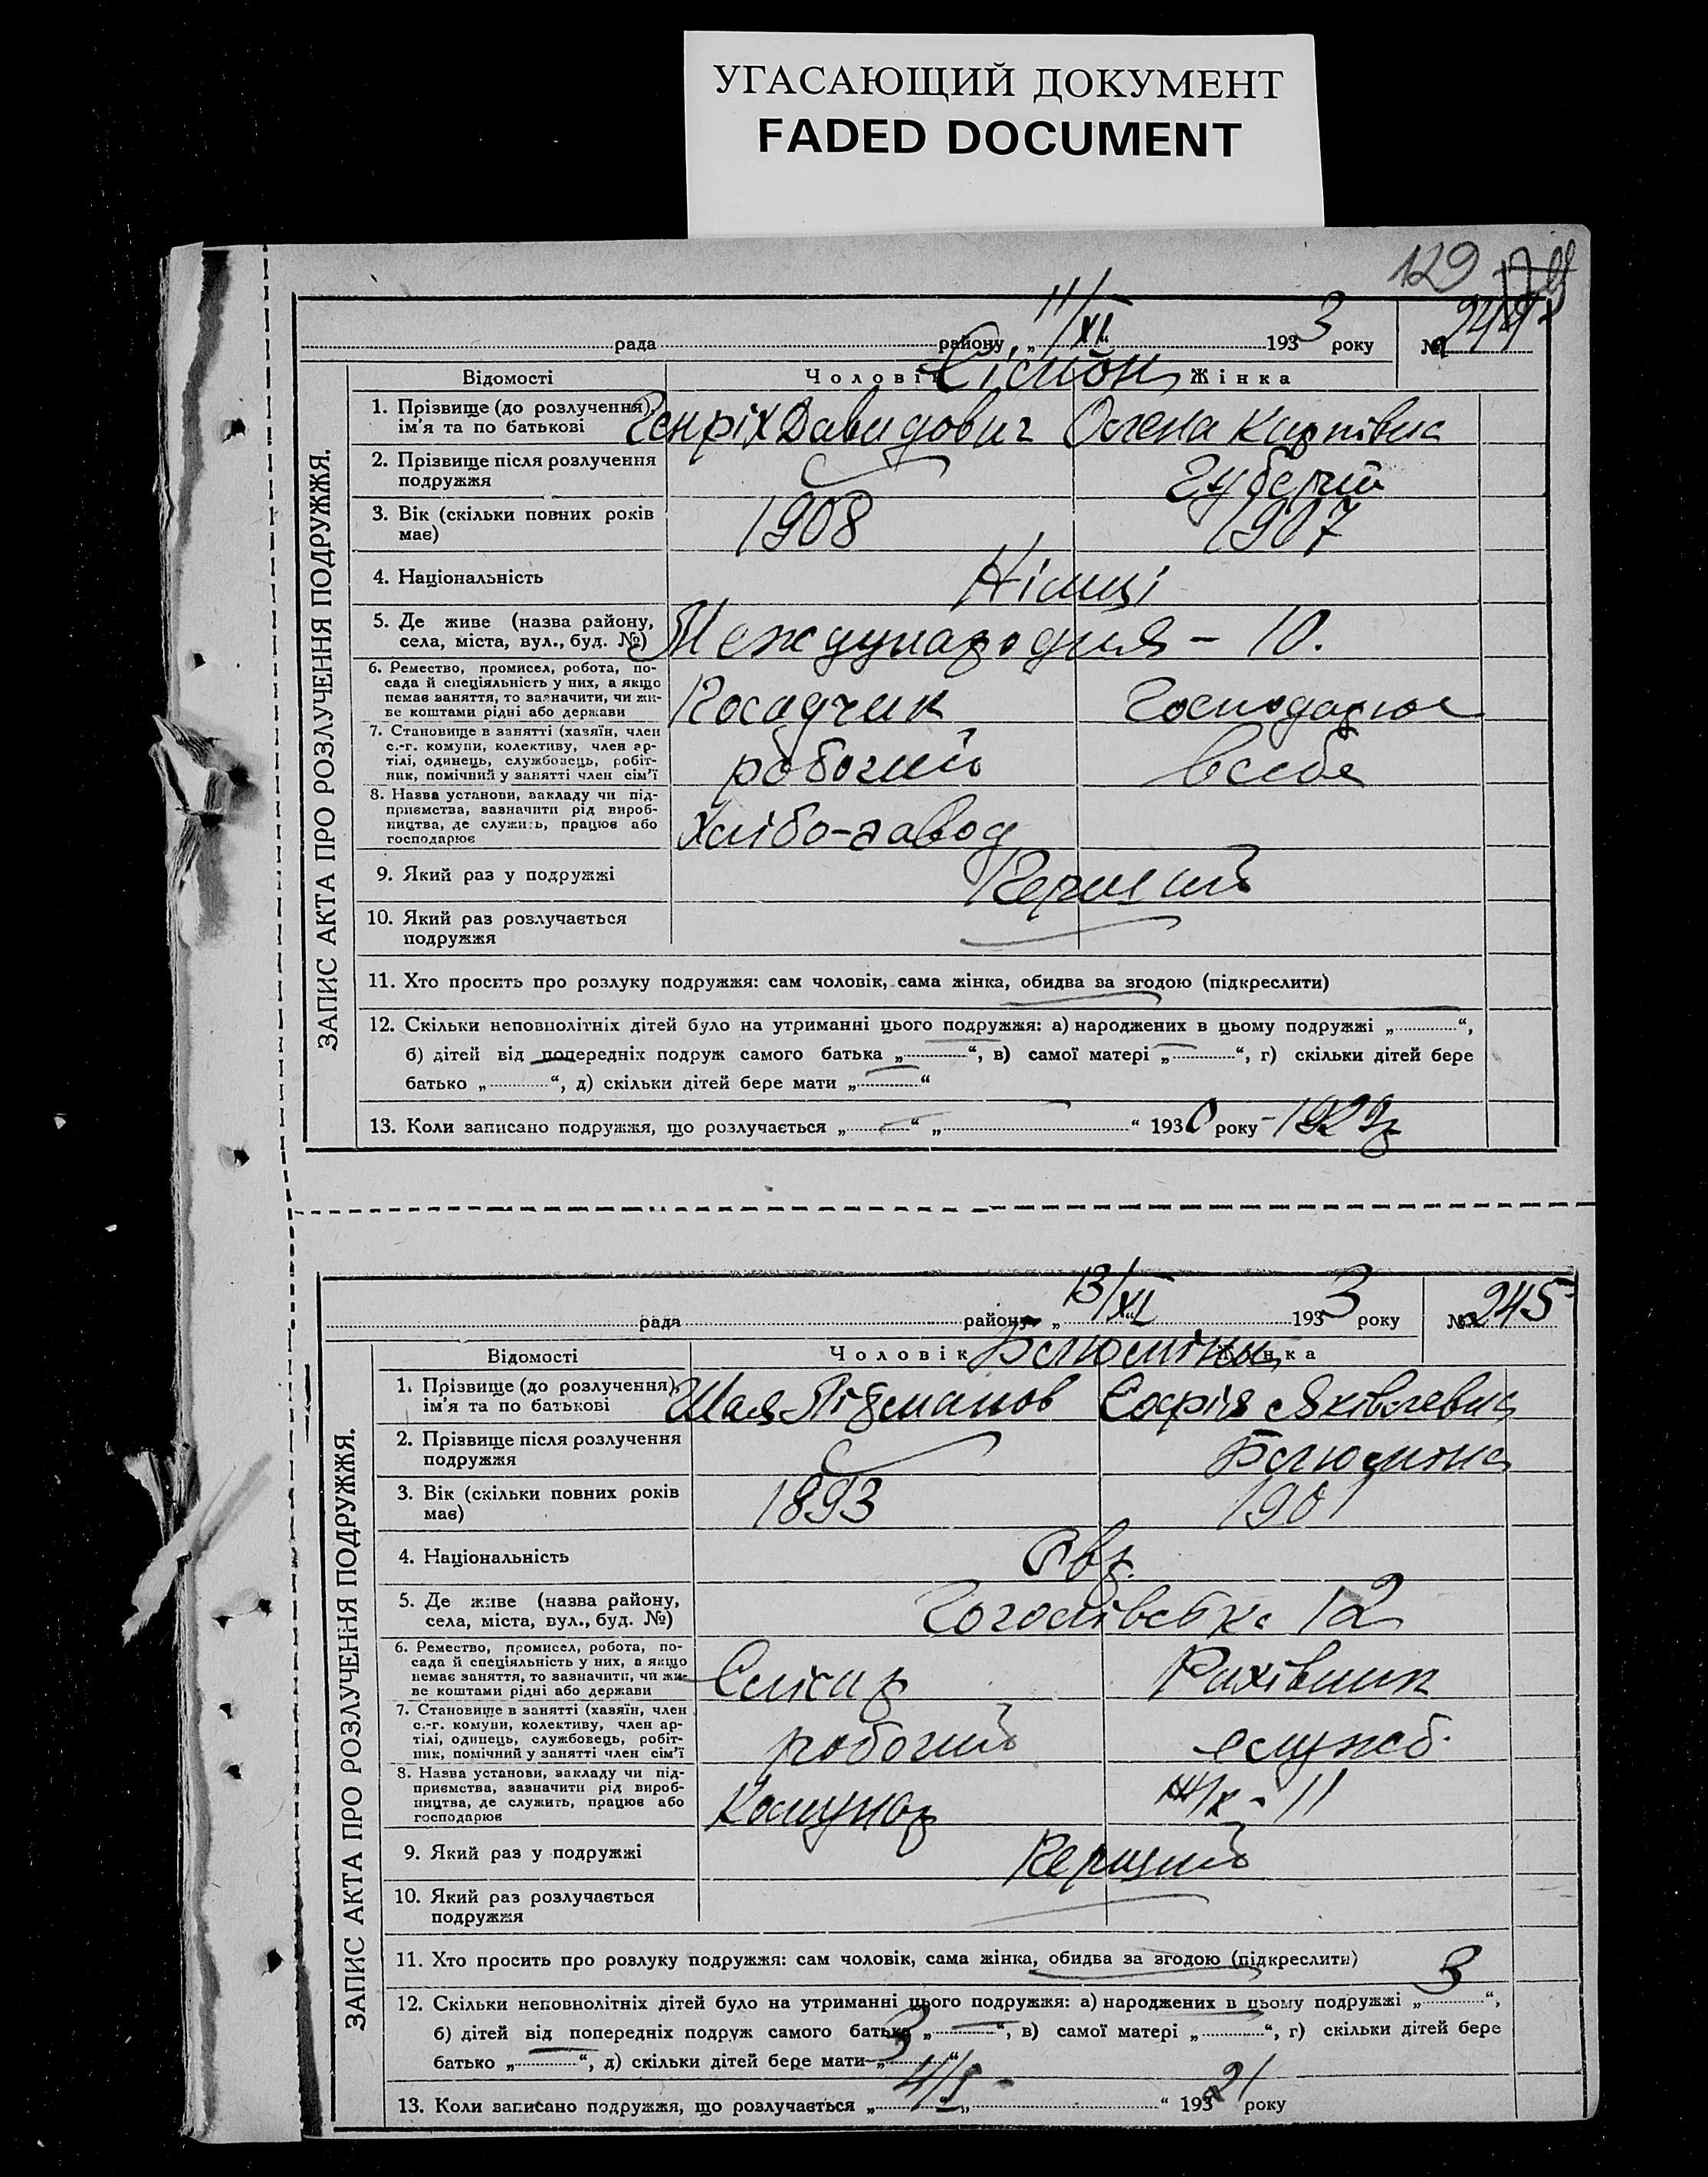 УГАСАЮЩИЙ ДОКУМЕНТ
FADED DOCUMENT
129
ЗАПИС АКТА ПРО РОЗЛУЧЕННЯ ПОДРУЖЖЯ.
рада району, „ 11/XI “ 1933 року № 244
Відомості Чоловік Жінка
Сімон
1. Прізвище (до розлучення), ім'я та по батькові Генріх Давидович Олена Карпівна
2. Прізвище після розлучення подружжя
3. Вік (скільки повних років має) 1908 1907
4. Національність Німці
5. Де живе (назва району, села, міста, вул., буд. №) Международня – 10.
6. Ремество, промисел, робота, по-
сада й спеціяльність у них, а якщо
немає заняття, то зазначити, чи жи-
ве коштами рідні або держави Посадчик Господарює
7. Становище в занятті (хазяїн, член
с.-г. комуни, колективу, член ар-
тілі, одинець, службовець, робіт-
ник, помічний у занятті член сім'ї робочий в себе
8. Назва установи, закладу чи під-
приємства, зазначити рід вироб-
ництва, де служить, працює або
господарює Хлібо-завод
9. Який раз у подружжі Перший
10. Який раз розлучається
подружжя
11. Хто просить про розлуку подружжя: сам чоловік, сама жінка, обидва за згодою (підкреслити)
12. Скільки неповнолітніх дітей було на утриманні цього подружжя: а) народжених в цьому подружжі „ “,
б) дітей від попередніх подруж самого батька „ “, в) самої матері „ “, г) скільки дітей бере
батько „ “, д) скільки дітей бере мати „ “
13. Коли записано подружжя, що розлучається „ “ „ “ 1930 року - 1929 р
ЗАПИС АКТА ПРО РОЗЛУЧЕННЯ ПОДРУЖЖЯ.
рада району „ 13/XI “ 1933 року № 245
Відомості Чоловік Жінка
Блюміни
1. Прізвище (до розлучення), ім'я та по батькові Шая Софія Яківлевна
2. Прізвище після розлучення подружжя Блюміна
3. Вік (скільки повних років має) 1893 1901
4. Національність Євр.
5. Де живе (назва району, села, міста, вул., буд. №) Гоголівськ. 12
6. Ремество, промисел, робота, по-
сада й спеціяльність у них, а якщо
немає заняття, то зазначити, чи жи-
ве коштами рідні або держави Слюсар Рахівник
7. Становище в занятті (хазяїн, член
с.-г. комуни, колективу, член ар-
тілі, одинець, службовець, робіт-
ник, помічний у занятті член сім'ї робочий служб.
8. Назва установи, закладу чи під-
приємства, зазначити рід вироб-
ництва, де служить, працює або
господарює Комунар ж/к - 11
9. Який раз у подружжі Перший
10. Який раз розлучається
подружжя
11. Хто просить про розлуку подружжя: сам чоловік, сама жінка, обидва за згодою (підкреслити)
12. Скільки неповнолітніх дітей було на утриманні цього подружжя: а) народжених в цьому подружжі „ 3 “,
б) дітей від попередніх подруж самого батька „ “, в) самої матері „ “, г) скільки дітей бере
батько „ “, д) скільки дітей бере мати „ 3 “
13. Коли записано подружжя, що розлучається „ 4/I “ 193 21 року